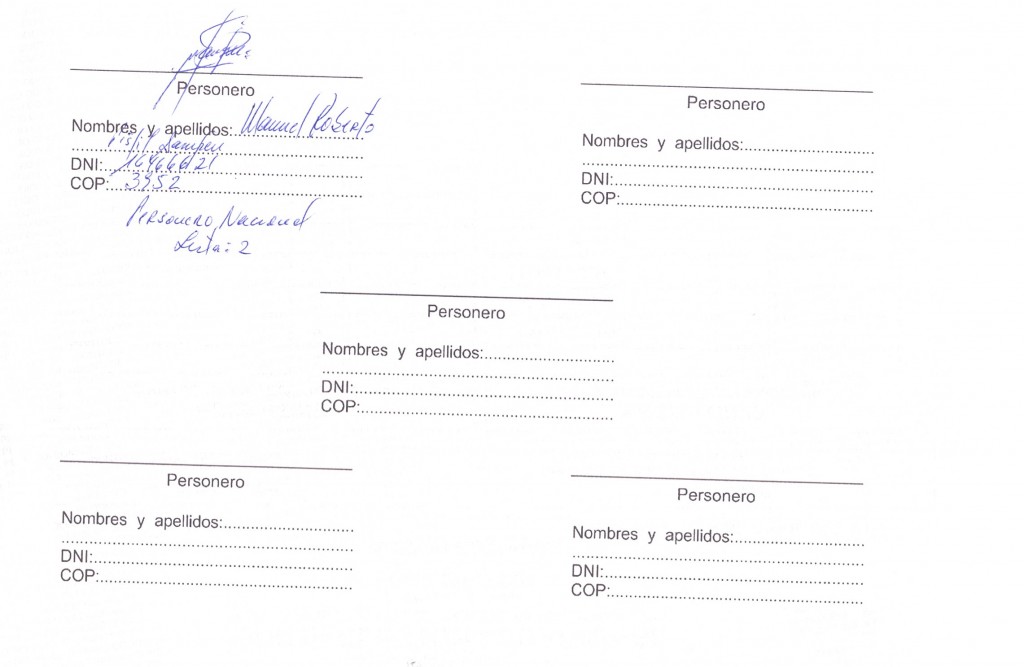 Personero
Nombres y apellidos: Manuel Roberto
DNI: 16466621
COP: 3952
Personero Nacional
Lista: 2
Personero
Nombres y apellidos:
DNI:
COP:
Personero
Nombres y apellidos:
DNI:
COP:
Personero
Nombres y apellidos:
DNI:
COP:
Personero
Nombres y apellidos:
DNI:
COP: